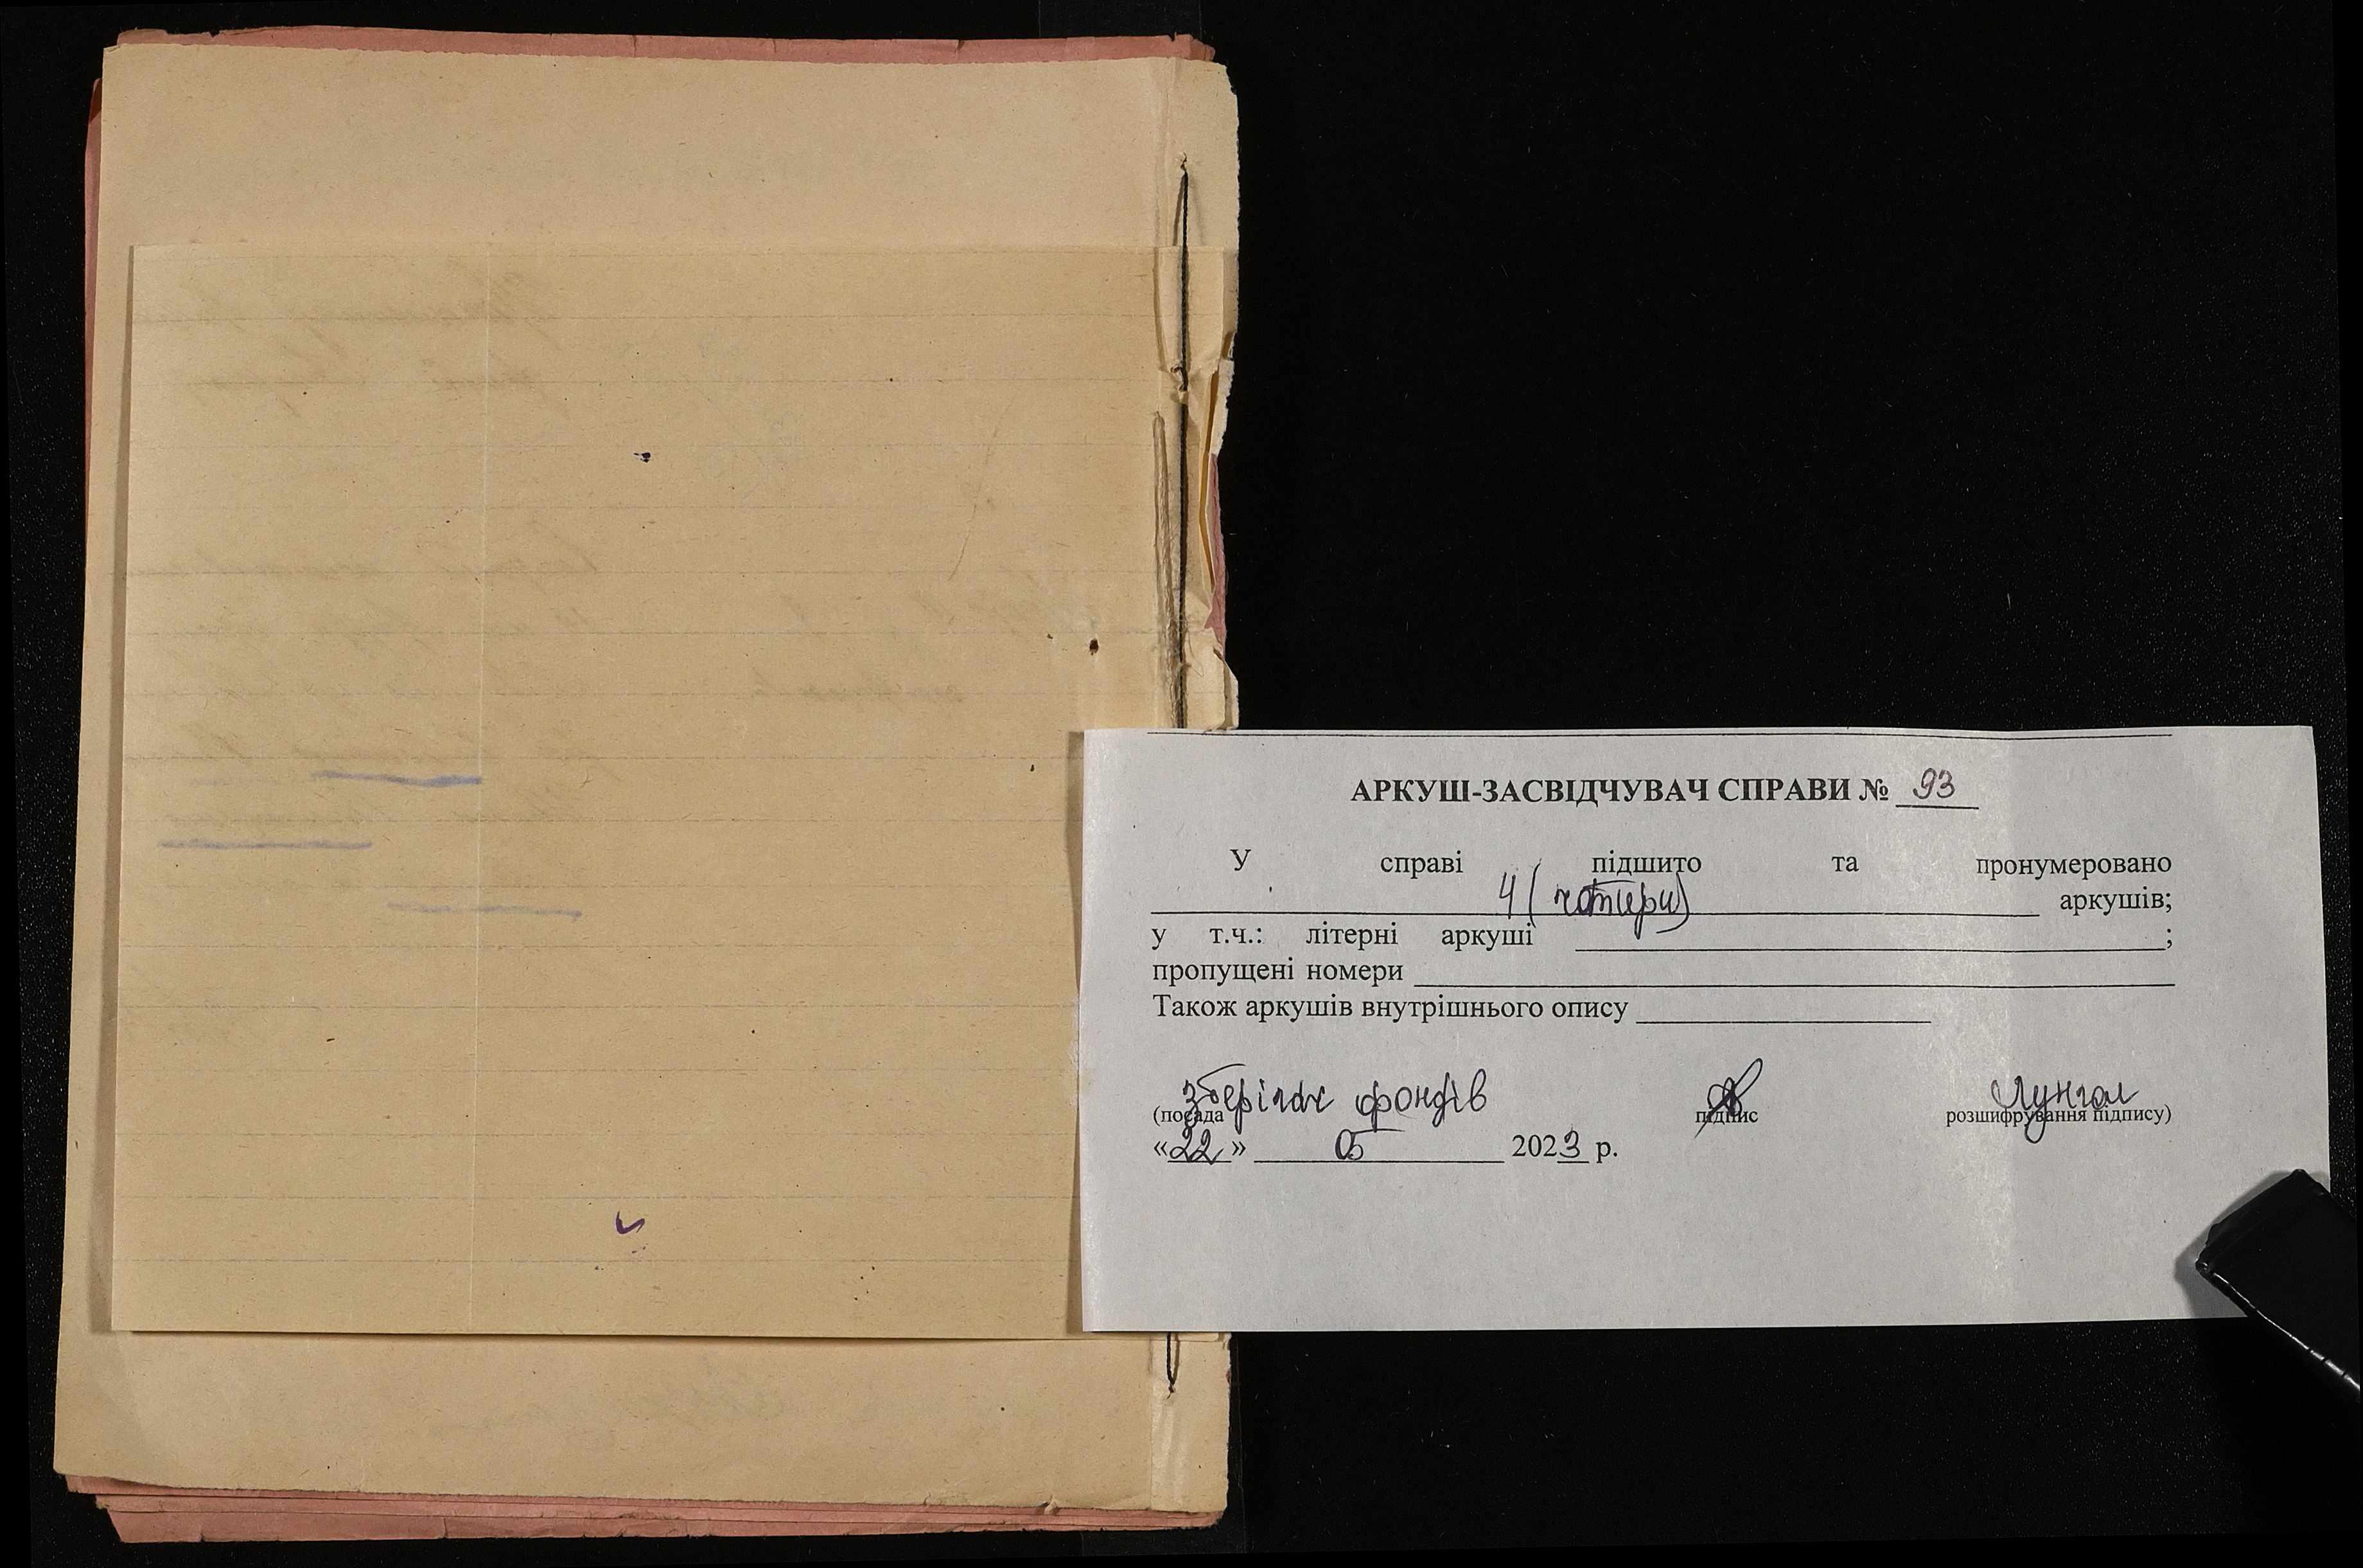 АРКУШ-ЗАСВІДЧУВАЧ СПРАВИ № 93
У справі підшито та пронумеровано
4 (чотири) аркушів;
у т.ч.: літерні аркуші ;
пропущені номери
Також аркушів внутрішнього опису
зберігач фондів
(посада підпис розшифрування підпису)
«22» 05 2023 р.